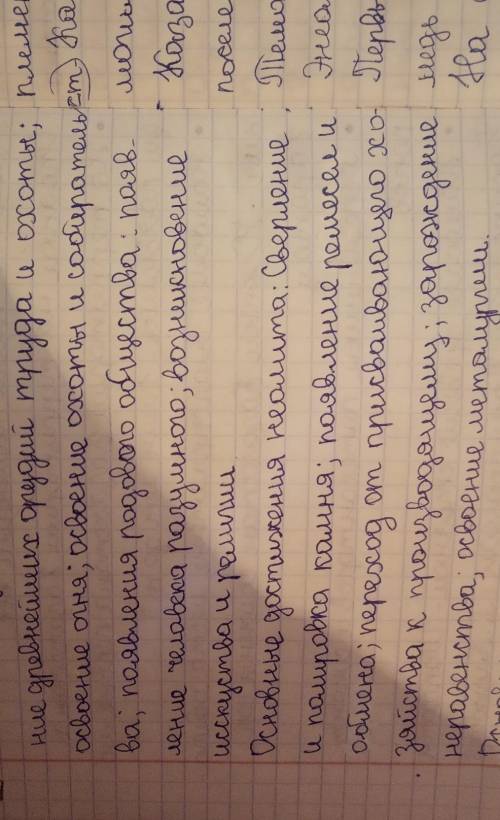 ние древнейших орудий труда и охоты;
освоение огня; освоение охоты и собирательст-
ва; появления родового общества: появ-
ление человека разумного; возникновение
искуства и религии.
Основные достижения неолита: Сверление
и полировка камня; появление ремесел и
обмена; переход от присваивающего хо-
зяйства к производящему; зарождение
неравенства; освоение металургии.
племе
Ка
Каза
посел
Энео
Первы
медь
На